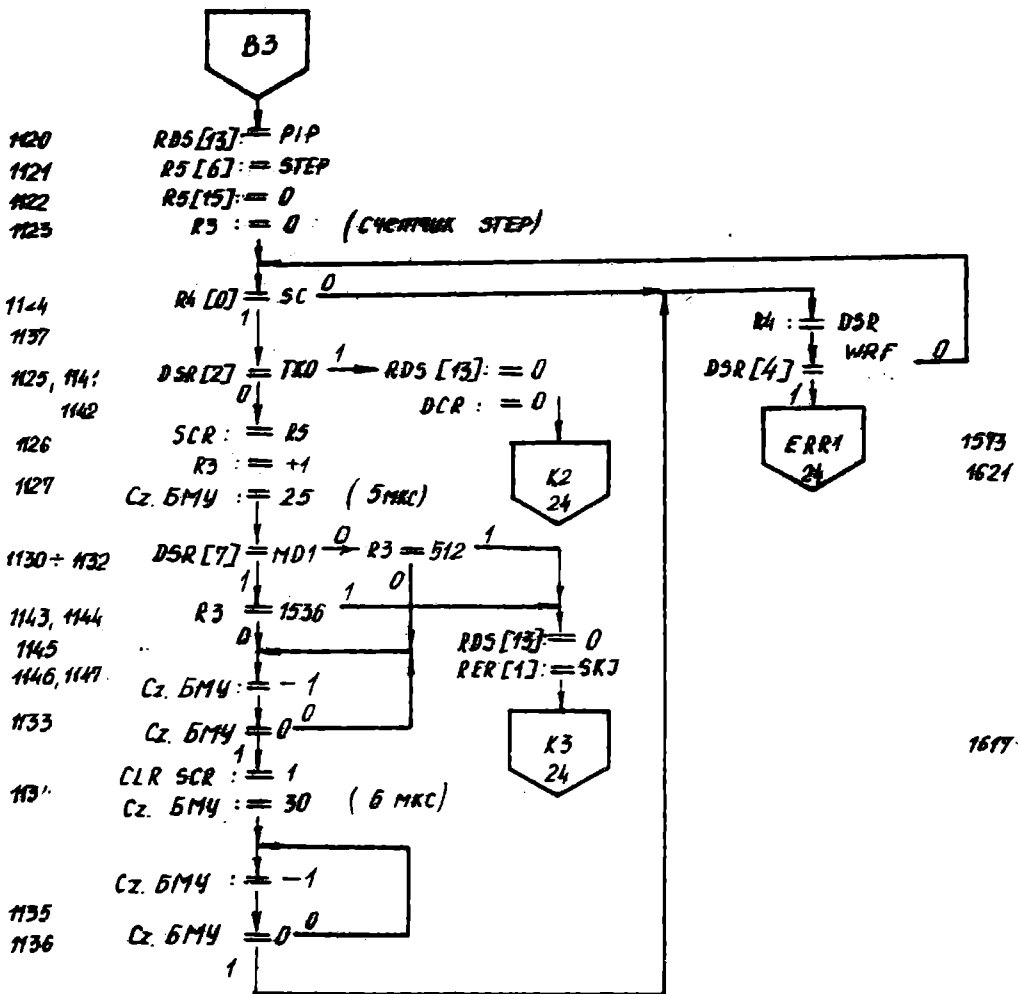 B3
1120 RDS[13]:= PIP
1121 R5[6]:= STEP
1122 R5[15]:= 0
1123 R3 := 0 (Счетчик STEP)
R4[0] = SC 0
1
1137
R4 := DSR
WRF 0
DSR[4] =
1
1125,
1142
DSR[2] = TK0 1 RDS[13]:= 0
0
DCR := 0
1126 SCR := R5
R3 := +1
K2
24
ERR1
24
1573
1621
1127 Cz. БМУ := 25 (5 мкс)
1130 ÷ 1132 DSR[7] = MD1 0 R3 = 512 1
1 0
1143, 1144 R3 = 1536 1
0
1145
RDS[13]:= 0
RER[1]:= SKJ
1146, 1147 Cz. БМУ := -1
1133 Cz. БМУ = 0 0
1
K3
24
1617
CLR SCR := 1
Cz. БМУ := 30 (6 мкс)
Cz. БМУ := -1
1135
1136 Cz. БМУ = 0 0
1